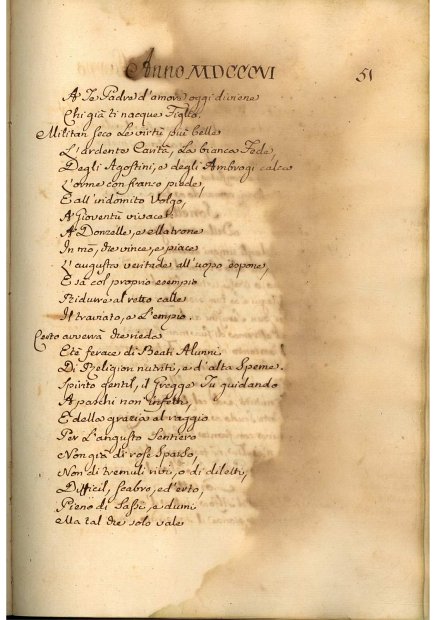 Anno MDCCCVI
51
A Te Padre d'amore oggi diviene
Chi già ti nacque Figlio.
Militan seco le virtù più belle
L'ardente Carità, la bianca Fede,
Degli Agostini, e degli Ambrogi calca
L'orme con franco piede,
E all'indomito Volgo,
A' Gioventù vivace
A' Donzelle, e Matrone
In mō, che vince, e piace
L'augusta veritade all'uopo espone,
E sà col proprio esempio
Ridurre al retto calle
Il traviato, e l'empio.
Certo avverrà che rieda
Età ferace di Beati Alunni
Di Religion nutriti, e d'alta Speme.
Spirto gentil, il Gregge Tu guidando
A paschi non infetti,
E della grazia al raggio
Per l'angusto Sentiero
Non già di rose sparso,
Non di tremuli rivi, o di diletti,
Difficil, scabro, ed erto,
Pieno di Sassi, e dumi
Ma tal che solo vale